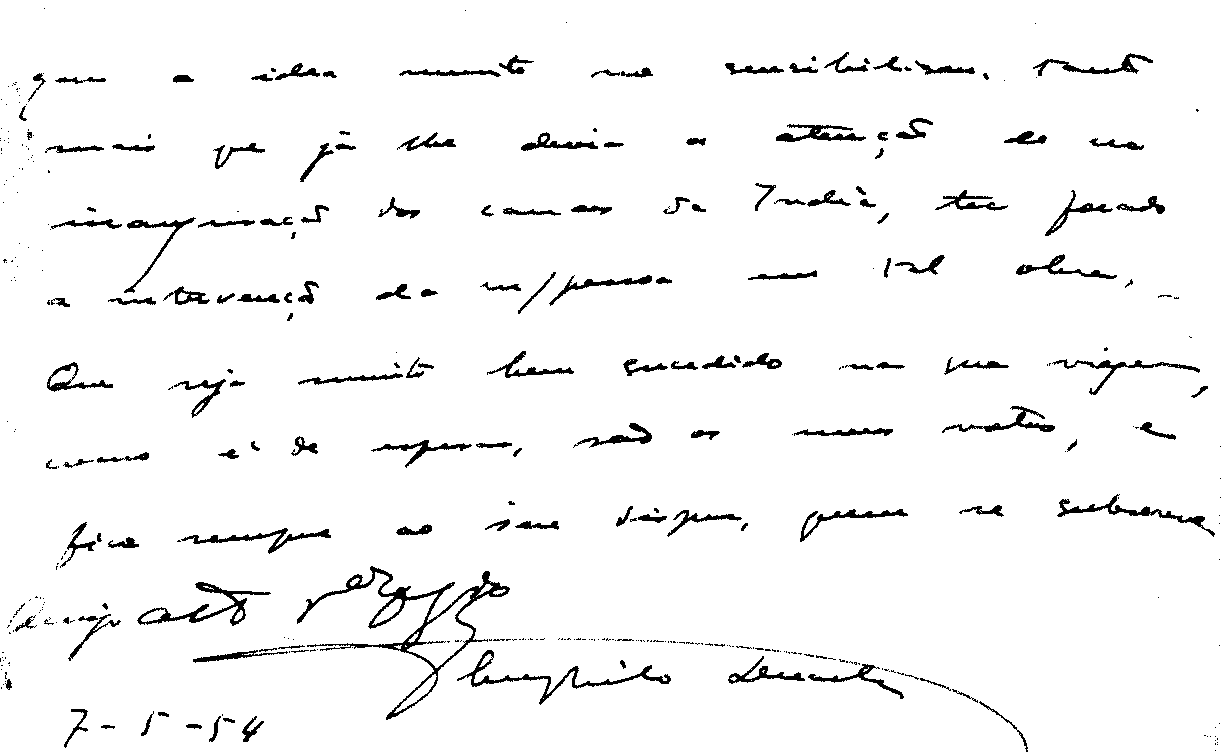 que a idea muito me sensibilisou, tanto
mais que já lhe devia a atenção de na
inauguração dos canaes da India, ter focado
a intervenção da m/pessoa em tal obra,
Que seja muito bem sucedido na sua viagem,
como é de esperar, são os meus votos, e
fica sempre ao seu dispor, quem se subscreve
Amigo
7-5-54